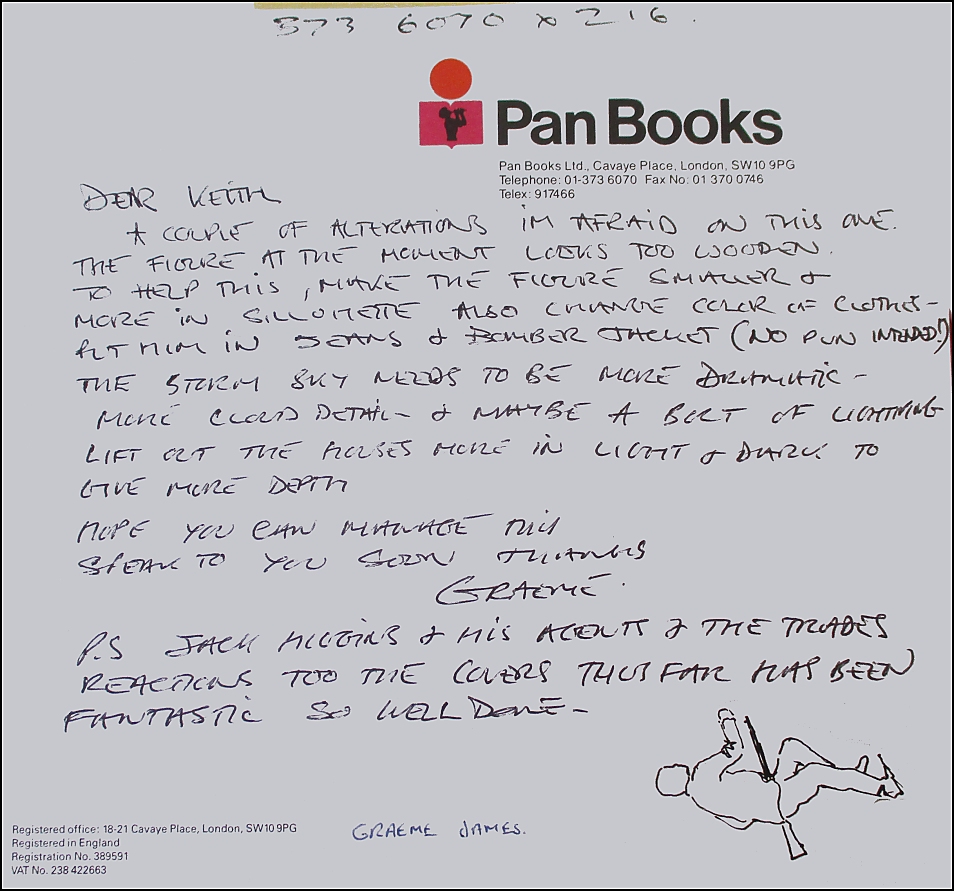 373 6070 x 216.
Pan Books
Pan Books Ltd., Cavaye Place, London, SW10 9PG
Telephone: 01-373 6070 Fax No: 01 370 0746
Telex: 917466
DEAR KEITH
A COUPLE OF ALTERATIONS IM AFRAID ON THIS ONE.
THE FIGURE AT THE MOMENT LOOKS TOO WOODEN.
TO HELP THIS, MAKE THE FIGURE SMALLER &
MORE IN SILLOHETTE ALSO CHANGE COLOR OF CLOTHES-
PUT HIM IN JEANS & BOMBER JACKET (NO PUN INTENDED!)
THE STORM SKY NEEDS TO BE MORE DRAMATIC -
MORE CLOUD DETAIL - & MAYBE A BOLT OF LIGHTNING
LIFT OUT THE HORSES MORE IN LIGHT & DARK TO
GIVE MORE DEPTH
HOPE YOU CAN MANAGE THIS
SPEAK TO YOU SOON THANKS
GRAEME.
P.S JACK HIGGINS & HIS AGENTS & THE TRADES
REACTIONS TOO THE COVERS THUS FAR HAS BEEN
FANTASTIC SO WELL DONE -
Registered office: 18-21 Cavaye Place, London, SW10 9PG
Registered in England
Registration No. 389591
VAT No. 238 422663
GRAEME JAMES.